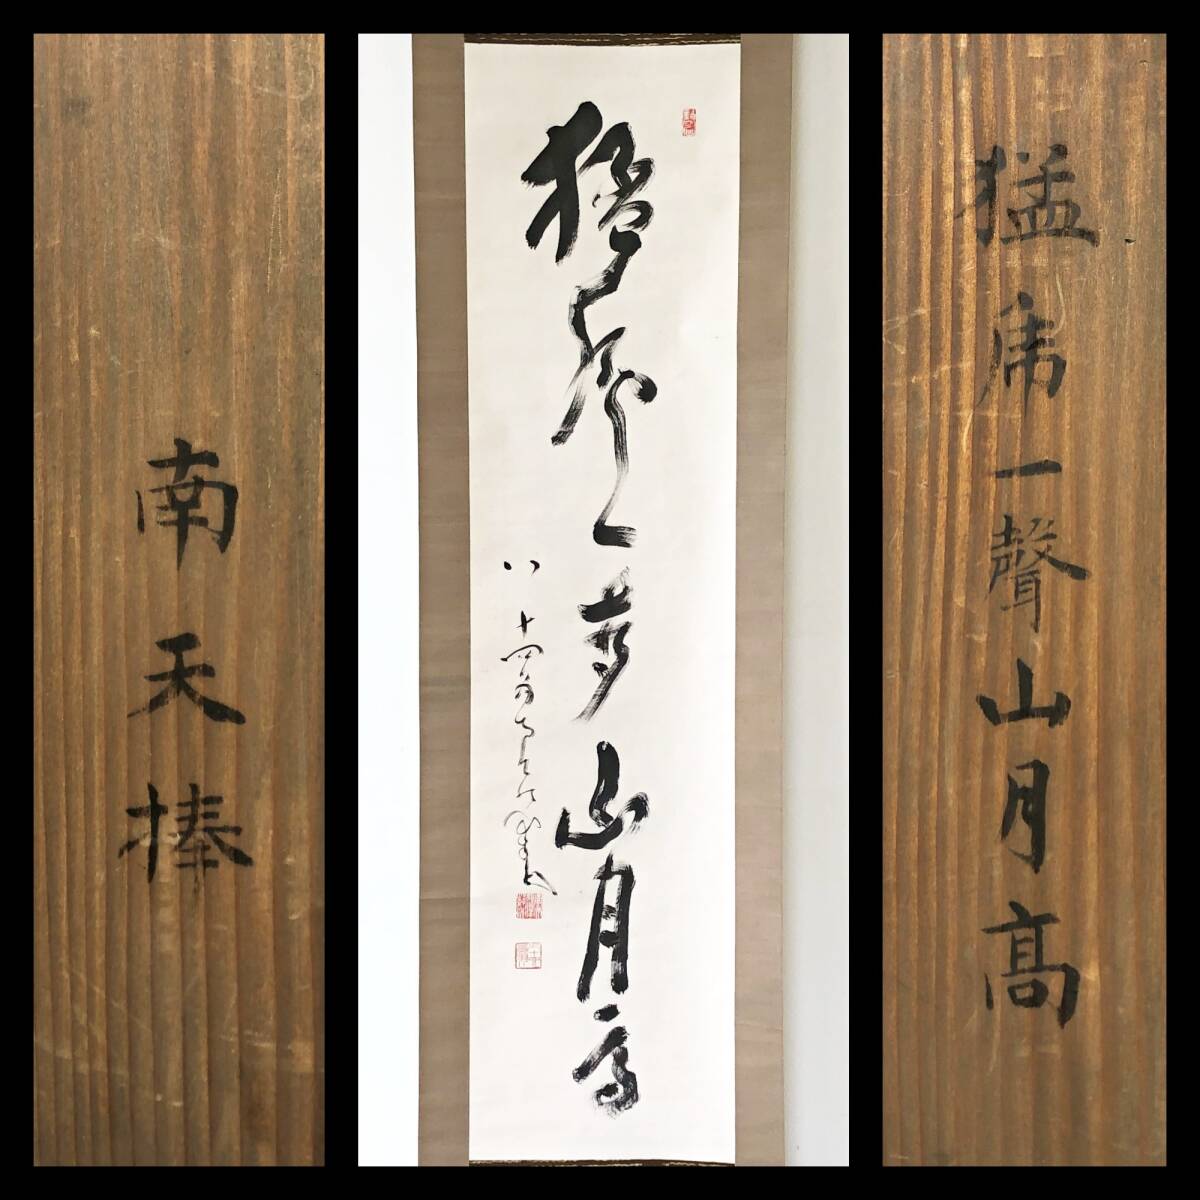 猛虎一聲山月髙
猛虎一聲山月高
八十四翁南天棒
南天棒